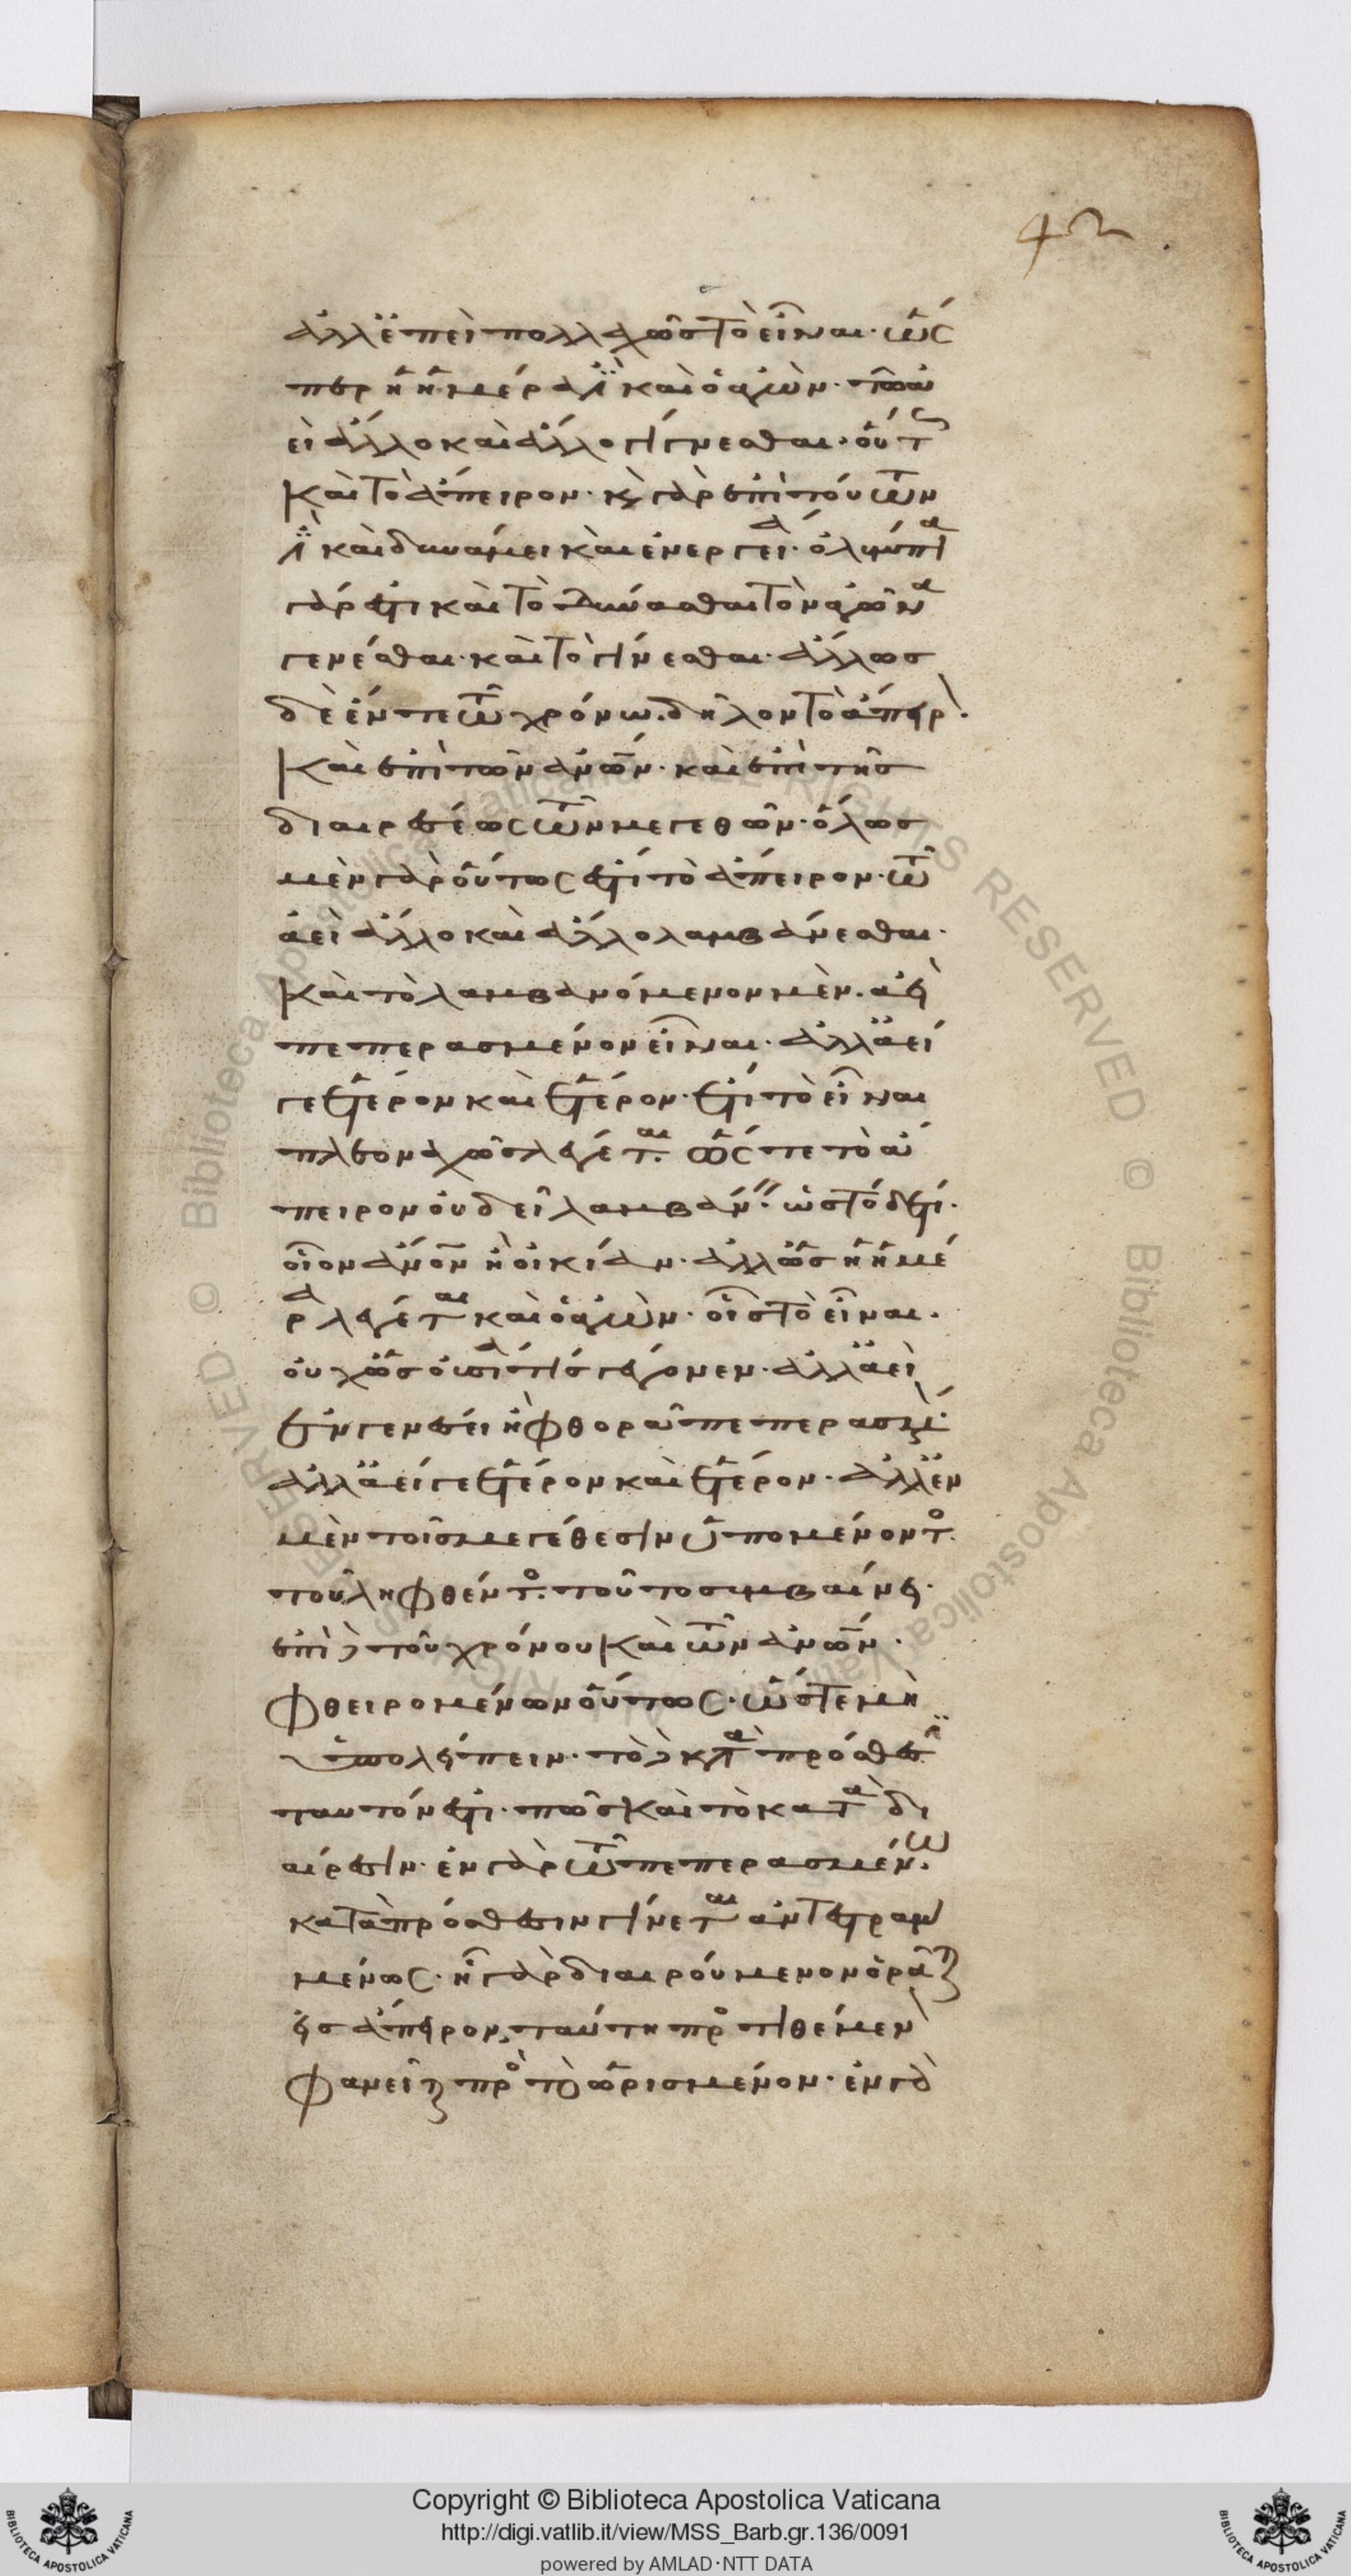 42
ἀλλ' ἐπεὶ πολλαχῶς τὸ εἶναι· ὥσ
περ ἡ ἡμέρα ἐστὶ καὶ ὁ ἀγὼν· τῷ ἀ
εὶ ἄλλο καὶ ἄλλο γίγνεσθαι· οὕτω
καὶ τὸ ἄπειρον· καὶ γὰρ ἐπὶ τούτων
ἐστὶ καὶ δυνάμει καὶ ἐνεργείᾳ· ὀλύμπια
γάρ ἐστι καὶ τῷ δύνασθαι τὸν ἀγῶνα
γενέσθαι· καὶ τῷ γίνεσθαι· ἄλλως
δὲ ἔν τε τῷ χρόνῳ· δῆλον τὸ ἄπειρον·
καὶ ἐπὶ τῶν ἀνθρώπων· καὶ ἐπὶ τῆς
διαιρέσεως τῶν μεγεθῶν· ὅλως
μὲν γὰρ οὕτως ἐστὶ τὸ ἄπειρον· τῷ
ἀεὶ ἄλλο καὶ ἄλλο λαμβάνεσθαι·
καὶ τὸ λαμβανόμενον μὲν· ἀεὶ
πεπερασμένον εἶναι· ἀλλ' ἀεί
γε ἕτερον καὶ ἕτερον· ἔτι τὸ εἶναι
πλεοναχῶς λέγεται· ὥστε τὸ ἄ
πειρον οὐ δεῖ λαμβάνειν ὡς τόδε τι·
οἷον ἄνθρωπον ἢ οἰκίαν· ἀλλ' ὡς ἡ ἡμέ
ρα λέγεται καὶ ὁ ἀγὼν· οἷς τὸ εἶναι·
οὐχ ὡς οὐσία τις γέγονεν· ἀλλ' ἀεὶ
ἐν γενέσει ἢ φθορᾷ πεπερασμένον·
ἀλλ' ἀεί γε ἕτερον καὶ ἕτερον· ἀλλ' ἐν
μὲν τοῖς μεγέθεσιν ὑπομένοντος
τοῦ ληφθέντος τοῦτο συμβαίνει·
ἐπὶ δὲ τοῦ χρόνου καὶ τῶν ἀνθρώπων·
φθειρομένων οὕτως· ὥστε μὴ
ὑπολείπειν· τὸ δὲ κατὰ πρόσθεσιν
ταυτόν ἐστι· πως καὶ τὸ κατὰ δι
αίρεσιν· ἐν γὰρ τῷ πεπερασμένῳ·
κατὰ πρόσθεσιν γίνεται ἀντεστραμ
μένως· ᾗ γὰρ διαιρούμενον ὁρᾶται
εἰς ἄπειρον, ταύτῃ προστιθέμενον
φανεῖται πρὸς τὸ ὡρισμένον· ἐν γὰρ
Copyright © Biblioteca Apostolica Vaticana
http://digi.vatlib.it/view/MSS_Barb.gr.136/0091
powered by AMLAD·NTT DATA